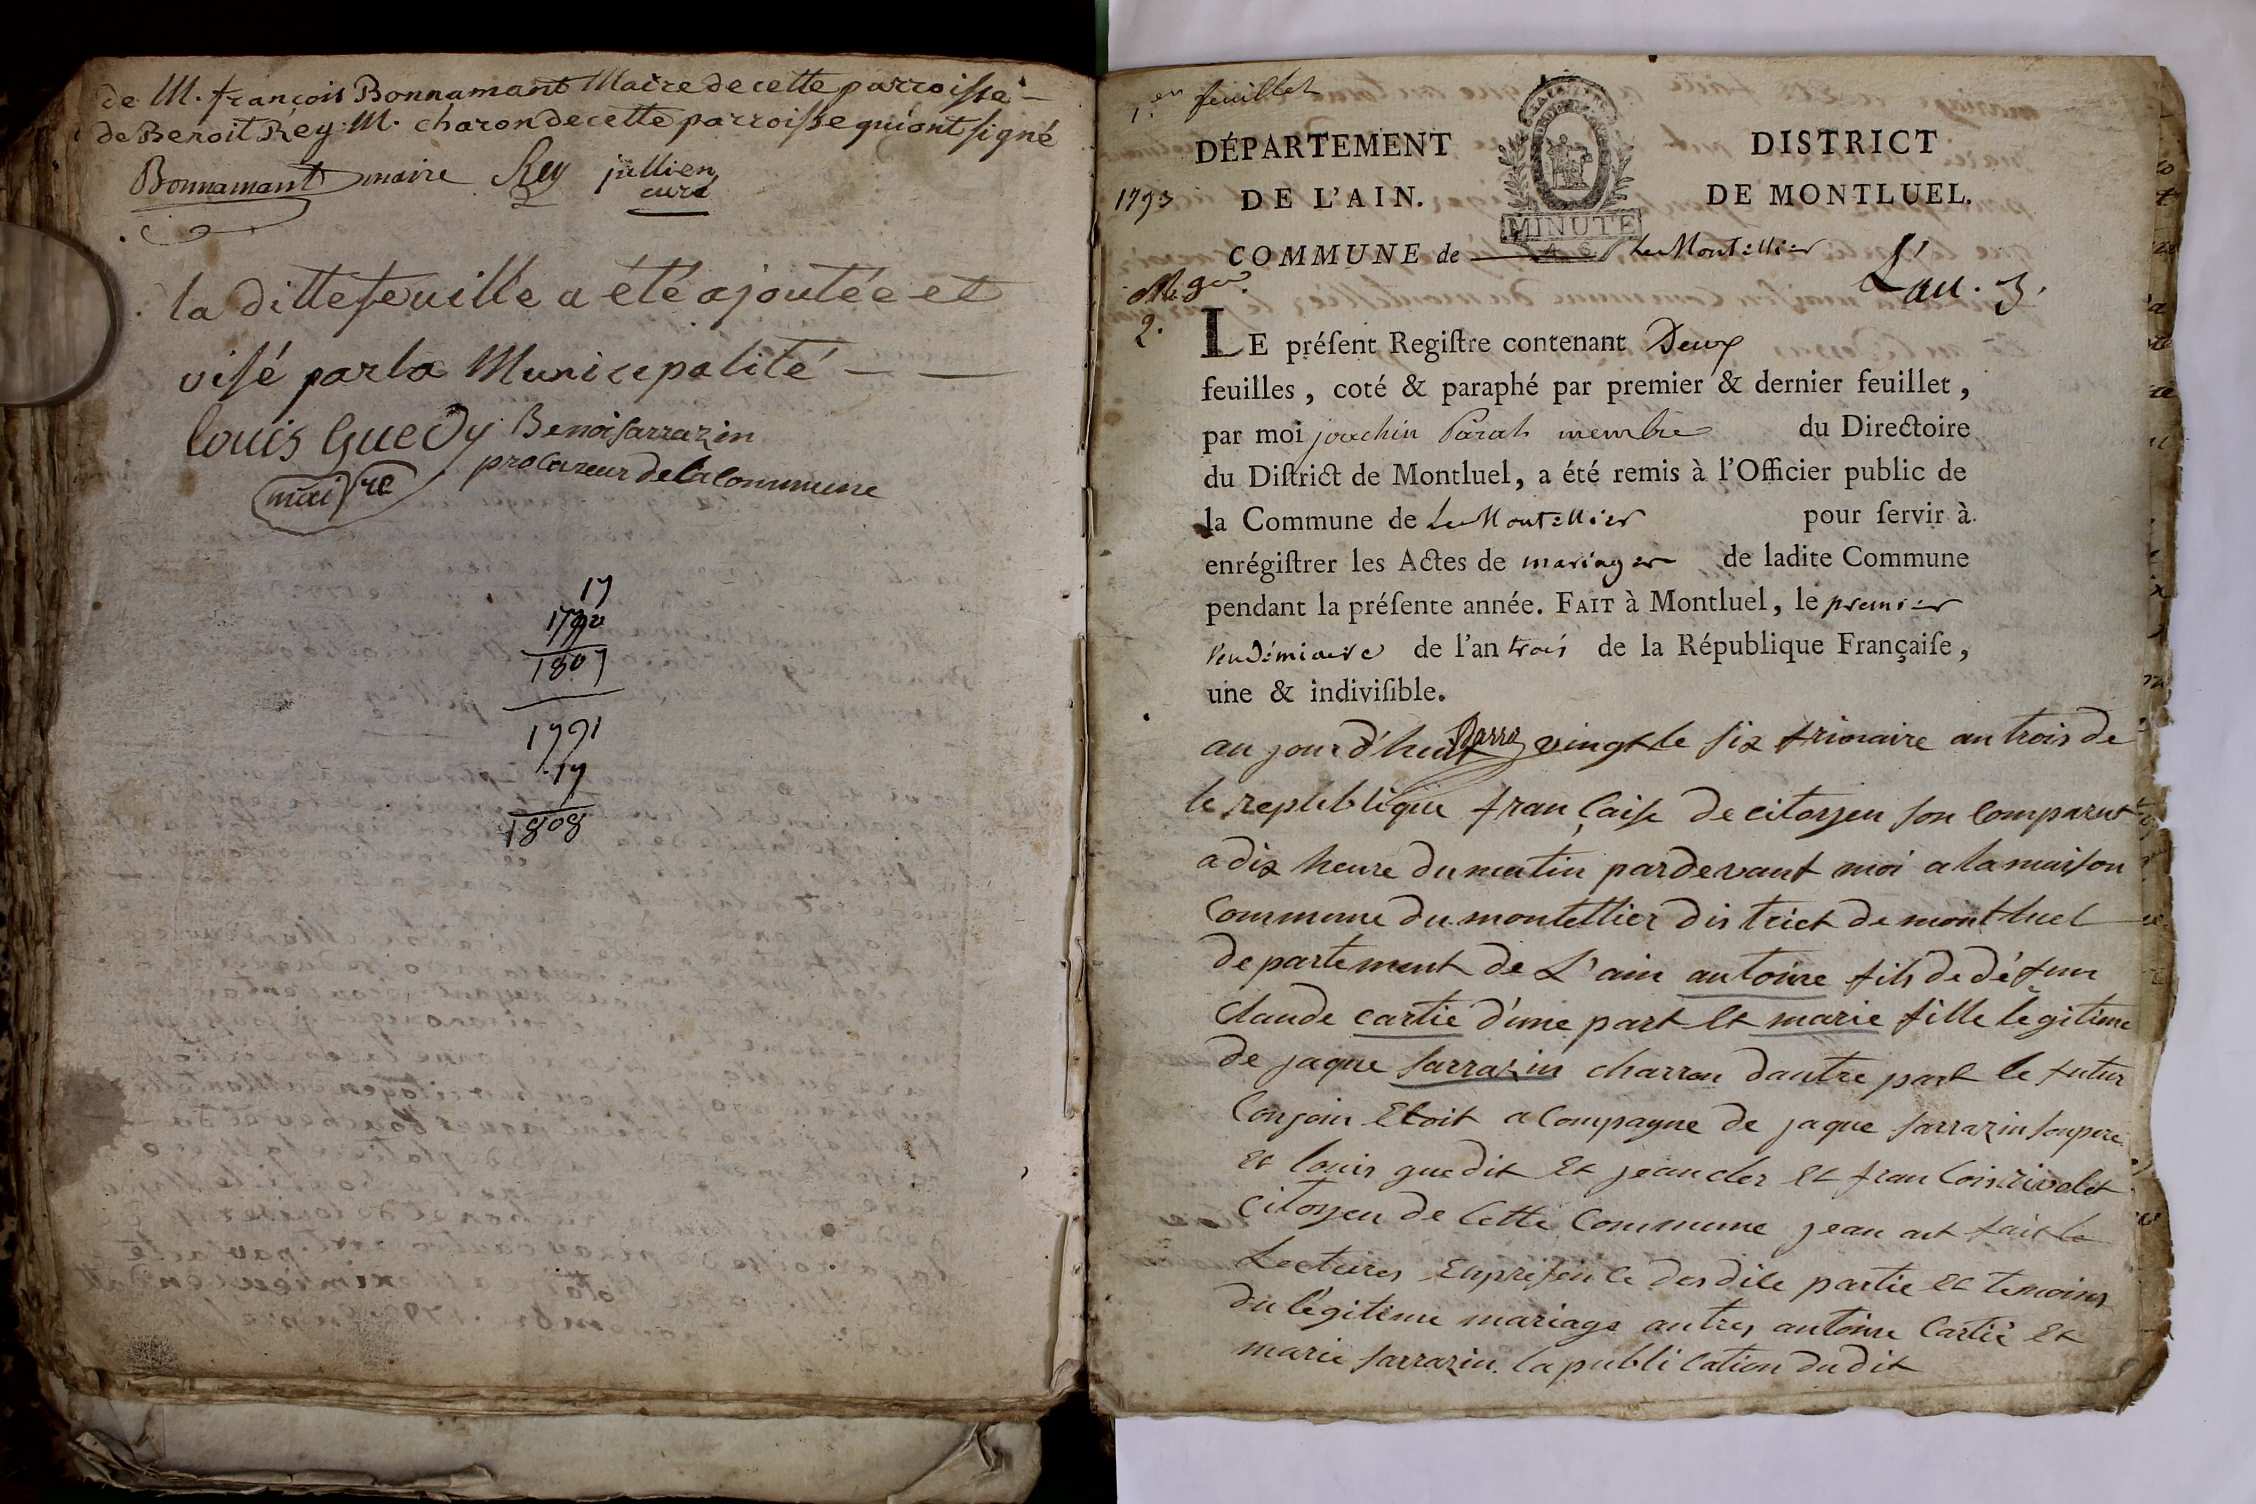 de M. françois Bonnamant Maire de cette parroisse –
de Benoit Rey M. charon de cette parroisse qui ont signé
Bonnamant maire Rey jullien
curé
la ditte feuille a été ajoutée et
visé par la Municipalité — —
louis Guedy Benoi sarrazin
maire procureur de la Commune
17
1790
1807
1791
17
1808
1.er feuillet
DÉPARTEMENT DISTRICT
1793 DE L'AIN. DE MONTLUEL.
MINUTE
COMMUNE de Le Montellier
L'an. 3.
2.
LE préſent Regiſtre contenant Deux
feuilles, coté & paraphé par premier & dernier feuillet,
par moi joachin membre du Directoire
du Diſtrict de Montluel, a été remis à l'Officier public de
la Commune de Le Montellier pour ſervir à
enrégiſtrer les Actes de mariages de ladite Commune
pendant la préſente année. FAIT à Montluel, le premier
Vendémiaire de l'an trois de la République Françaiſe,
une & indiviſible.
au jourd'hui vingt le six frimaire an trois de
le republique française de citoyen son comparut
a dix heure du matin pardevant moi a la maison
commune du montellier district de montluel
departement de L'ain antoine fils de défun
Claude cartié d'une part et marie fille légitime
de jaque sarrazin charron dautre part le futur
Conjoin Etoit acompagne de jaque sarrazin son pere
et louis guedit et jean cler et francois rivolet
Citoyen de cette Commune jean ait fait le
Lectures en presence des dite partie et temoins
du légitime mariage autres antoine Cartié et
marie sarrazin. la publication du dit